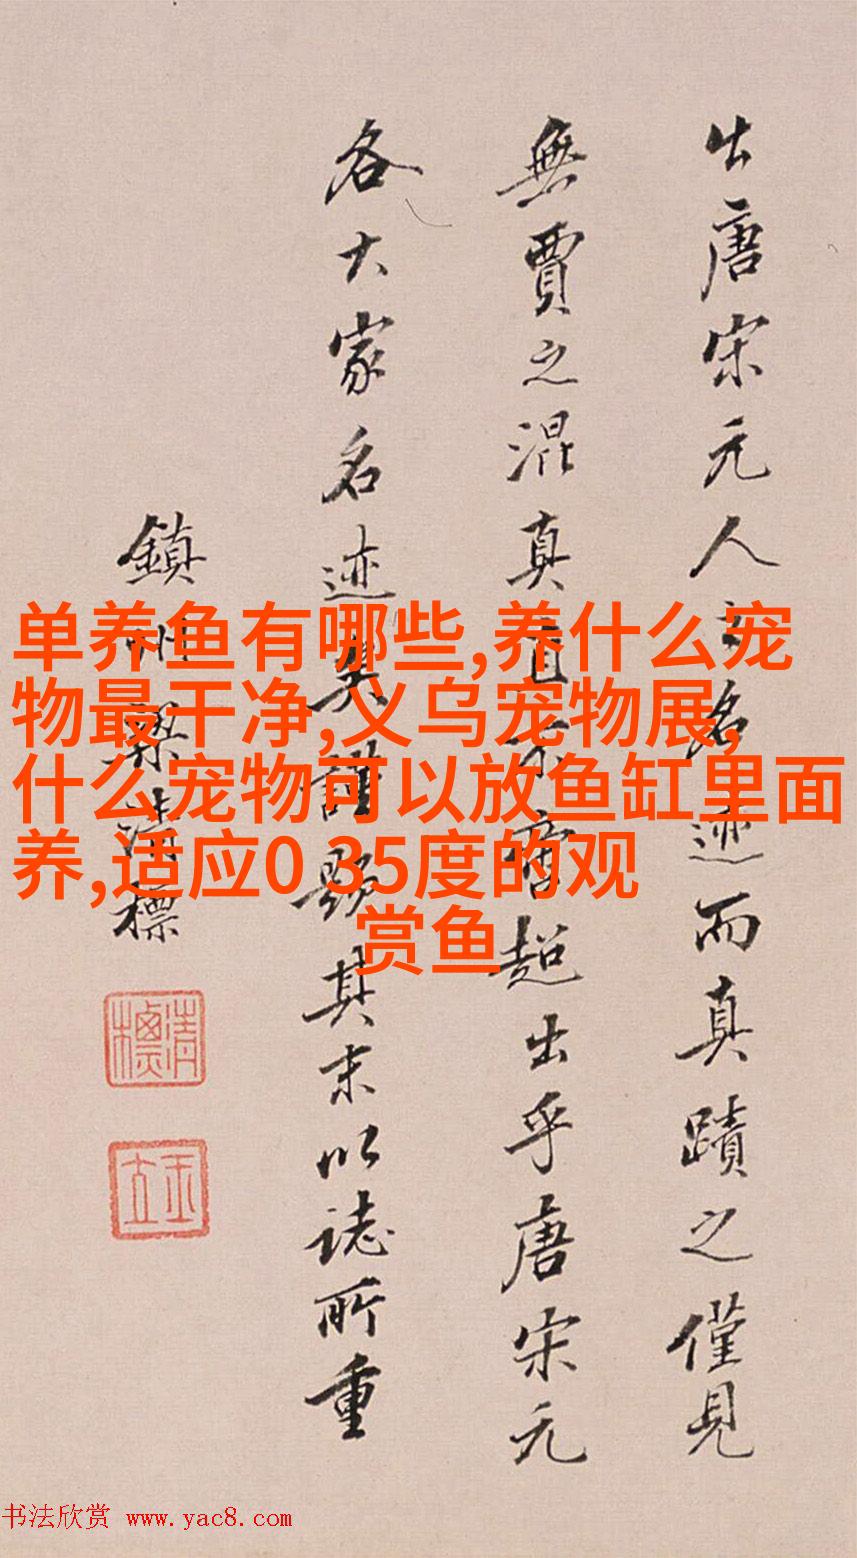 出唐宋元人之名迹而真蹟之僅見
無賈之混真直不啻超出乎唐宋元
各大家名迹矣謹題其末以誌所重
鎮州梁清標
清標
玉立
单养鱼有哪些,养什么宠
物最干净,义乌宠物展,
什么宠物可以放鱼缸里面
养,适应0 35度的观
赏鱼
书法欣赏 www.yac8.com